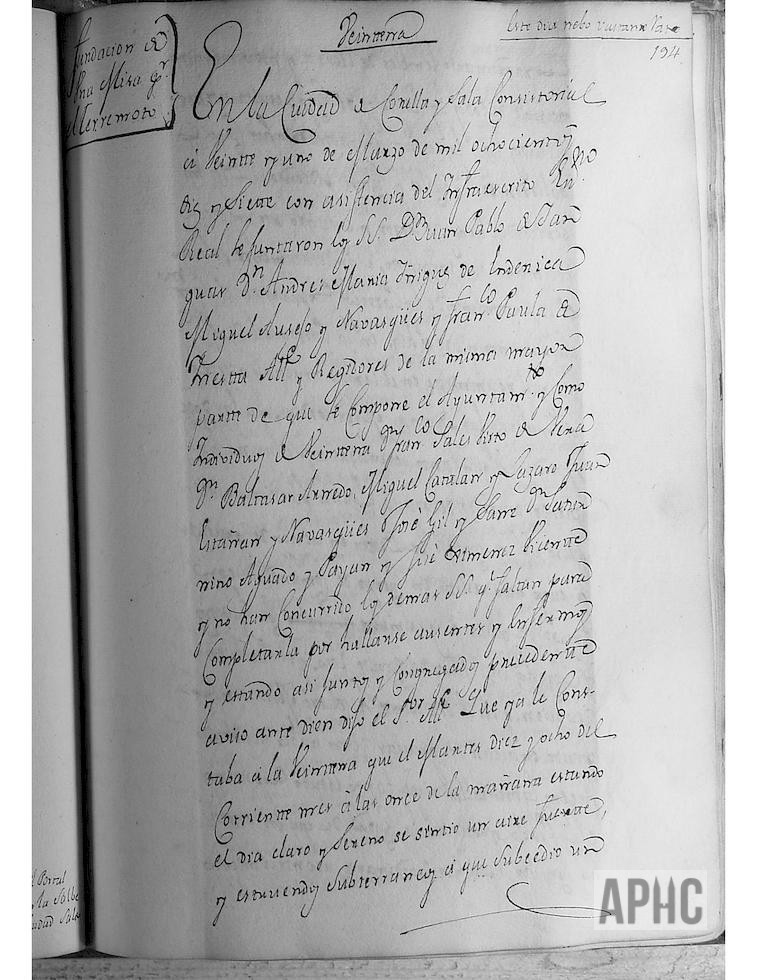 Veintena
Este dia nebo vacante
194
Fundacion de
Una Misa pr.
el Terremoto
En la Ciudad de Corella y Sala Consistorial
á Veinte y uno de Marzo de mil ochocientos
diez y siete con asistencia del Infraescrito Essno
Real se juntaron los SS. Dn Juan Pablo de San
guar Dn Andres Maria Iñiguez de
Miguel Auseso y Navasques y Franco Paula de
Vrestta Alle y Regidores de la misma mayor
partte de que se Compone el Ayuntamto y Como
Individuos de Veintena Dn Franco Sales Virto de Vera
Dn Baltasar Arnedo, Miguel Catalan y Lazaro Juan
Estañan y Navasques José Gil y Sarre Dn Satur
nino Aguado y Payan y José Ximenez Vicentte
y no han Concurrido los demas SS. qe faltan para
Completarla por hallarse ausentes y Infermos
y estando asi juntos y Congregados precedentte
aviso ante diem dijo el Sor Alle Que ya le Cons-
taba á la Veintena que el Martes diez y ocho del
Corrientte mes á las once de la mañana estando
el dia claro y Sereno se sintio un aire fuertte,
y estruendos Subterraneos á que Subcedio un
el Portal
de la
Ciudad
APHC